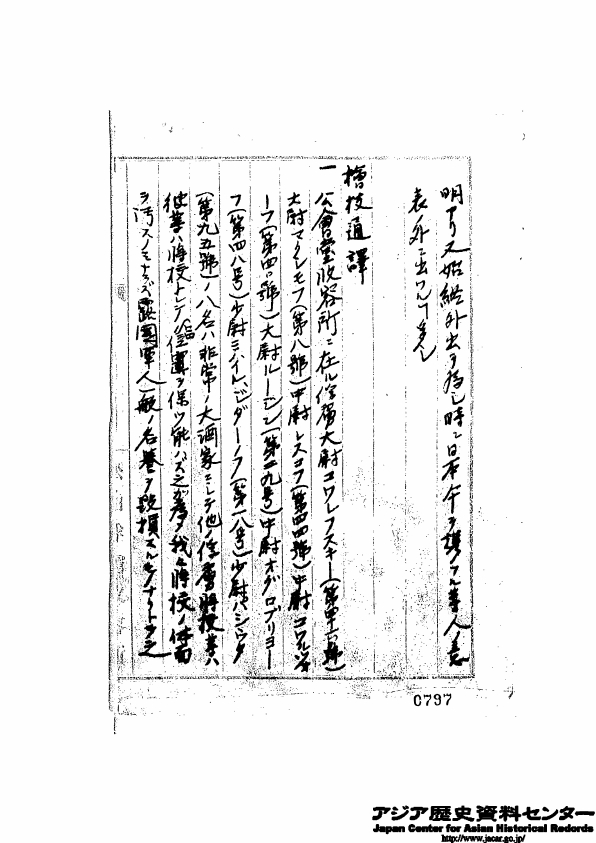 明アリ又始終外出ヲ為シ時ニ日本人ヲ誘フル等人ノ意
表ノ外ニ出ツル
檜枝通譯
一 公會堂收容所ニ在ル俘虜大尉コワレフスキー(第四十六號)
大尉マクレモフ(第八號)中尉レスコフ(第四四號)中尉コワル
ーフ(第四〇號)大尉ルージン(第二九号)中尉オグロブリヨー
フ(第四八号)少尉ミハイル、シダーノフ(第一八号)少尉バシウタ
(第九五號)ノ八名ハ非常ノ大酒家ニシテ他ノ俘虜將校等ハ
彼等ハ將校トシテ位置ヲ保ツ能ハズ之ガ為メ我々將校ノ体面
ヲ汚スノミナラズ露國軍人一般ノ名誉ヲ毀損スルモノナリトテ之
0797
アジア歴史資料センター
Japan Center for Asian Historical Records
http://www.jacar.go.jp/